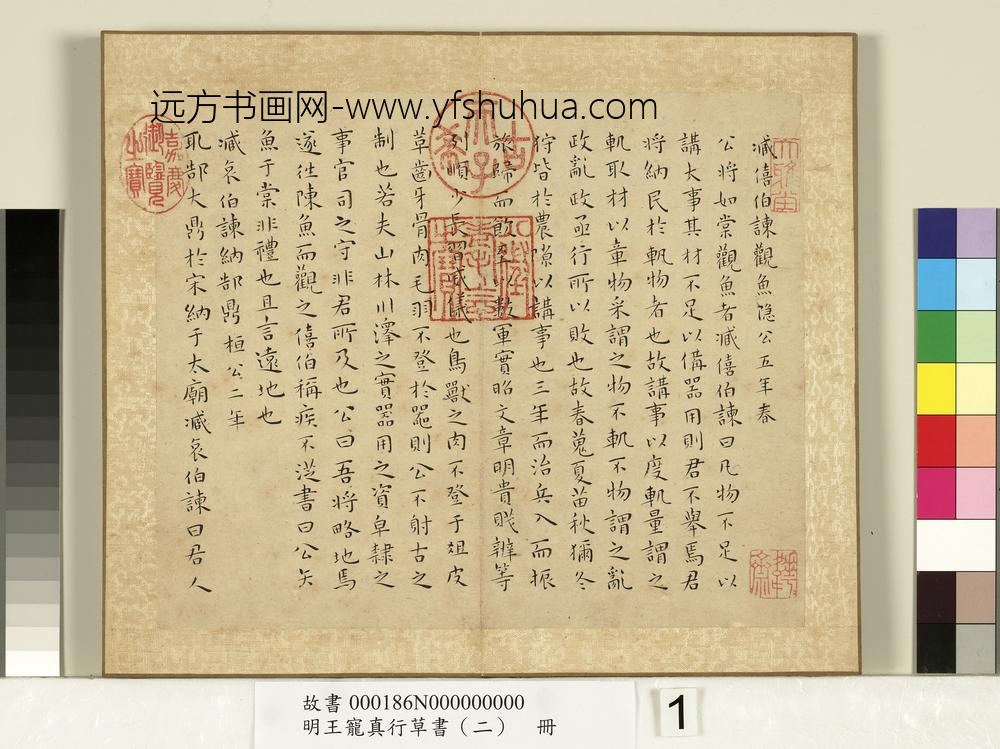 远方书画网-www.yfshuhua.com
臧僖伯諫觀魚隱公五年春
公將如棠觀魚者臧僖伯諫曰凡物不足以
講大事其材不足以備器用則君不舉焉君
將納民於軌物者也故講事以度軌量謂之
軌取材以章物采謂之物不軌不物謂之亂
政亂政亟行所以敗也故春蒐夏苗秋獮冬
狩皆於農隙以講事也三年而治兵入而振
旅歸而飲至以數軍實昭文章明貴賤辨等
列順少長習威儀也鳥獸之肉不登于俎皮
革齒牙骨肉毛羽不登於器則公不射古之
制也若夫山林川澤之實器用之資皁隸之
事官司之守非君所及也公曰吾將略地焉
遂往陳魚而觀之僖伯稱疾不從書曰公矢
魚于棠非禮也且言遠地也
臧哀伯諫納郜鼎 桓公二年
取郜大鼎於宋納于太廟臧哀伯諫曰君人
古希天子
嘉慶御覽之寶
故書 000186N000000000
明王寵真行草書（二） 冊
1